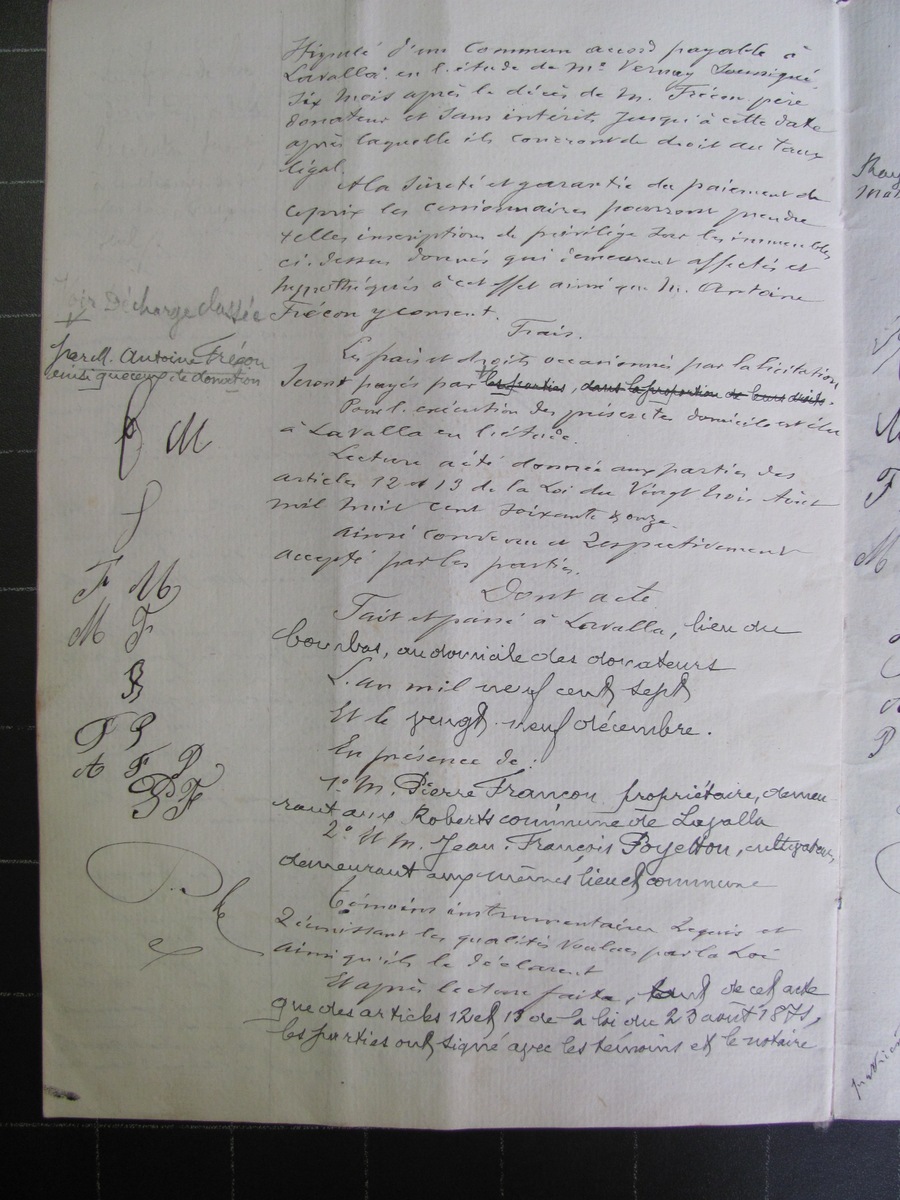 Stipulé d'un commun accord payable à
Lavalla en l'étude de Me Vernay soussigné
Six mois après le décès de M. Frécon père
donateur et sans intérêts jusqu'à cette date
après laquelle ils courront de droit au taux
légal.
A la sûreté et garantie du paiement de
ce prix les cessionnaires pourront prendre
telles inscription de privilège sur les immeubles
ci-dessus donnés qui demeurent affectés et
hypothéqués à cet effet ainsi que M. Antoine
Frécon y consent.
Voir Décharge classée
Frais.
Les frais et droits occasionnés par la licitation
Seront payés par les parties, dans la proportion de leurs droits.
par M. Antoine Frécon
ainsi que ceux de donation
Pour l'exécution des présentes domicile est élu
à Lavalla en l'étude.
Lecture a été donnée aux parties des
articles 12 et 13 de la Loi du Vingt trois Août
mil huit cent soixante & onze.
ainsi convenu et Respectivement
accepté par les parties.
Dont acte
Fait et passé à Lavalla, lieu du
bourbas, au domicile des donateurs
L'an mil neuf cent sept
Et le vingt-neuf décembre.
En présence de :
1° M. Pierre Francon propriétaire, demeu-
rant aux Roberts commune de Lavalla
2° Et M. Jean-François Poyetton, cultivateur,
demeurant aux mêmes lieu et commune
témoins instrumentaires Requis et
Réunissant les qualités Voulues par la Loi
ainsi qu'ils le déclarent
Et après lecture faite, tant de cet acte
que des articles 12 et 13 de la loi du 23 août 1871,
les parties ont signé avec les témoins et le notaire
M
F M
M F
B
F P
A F P
P F